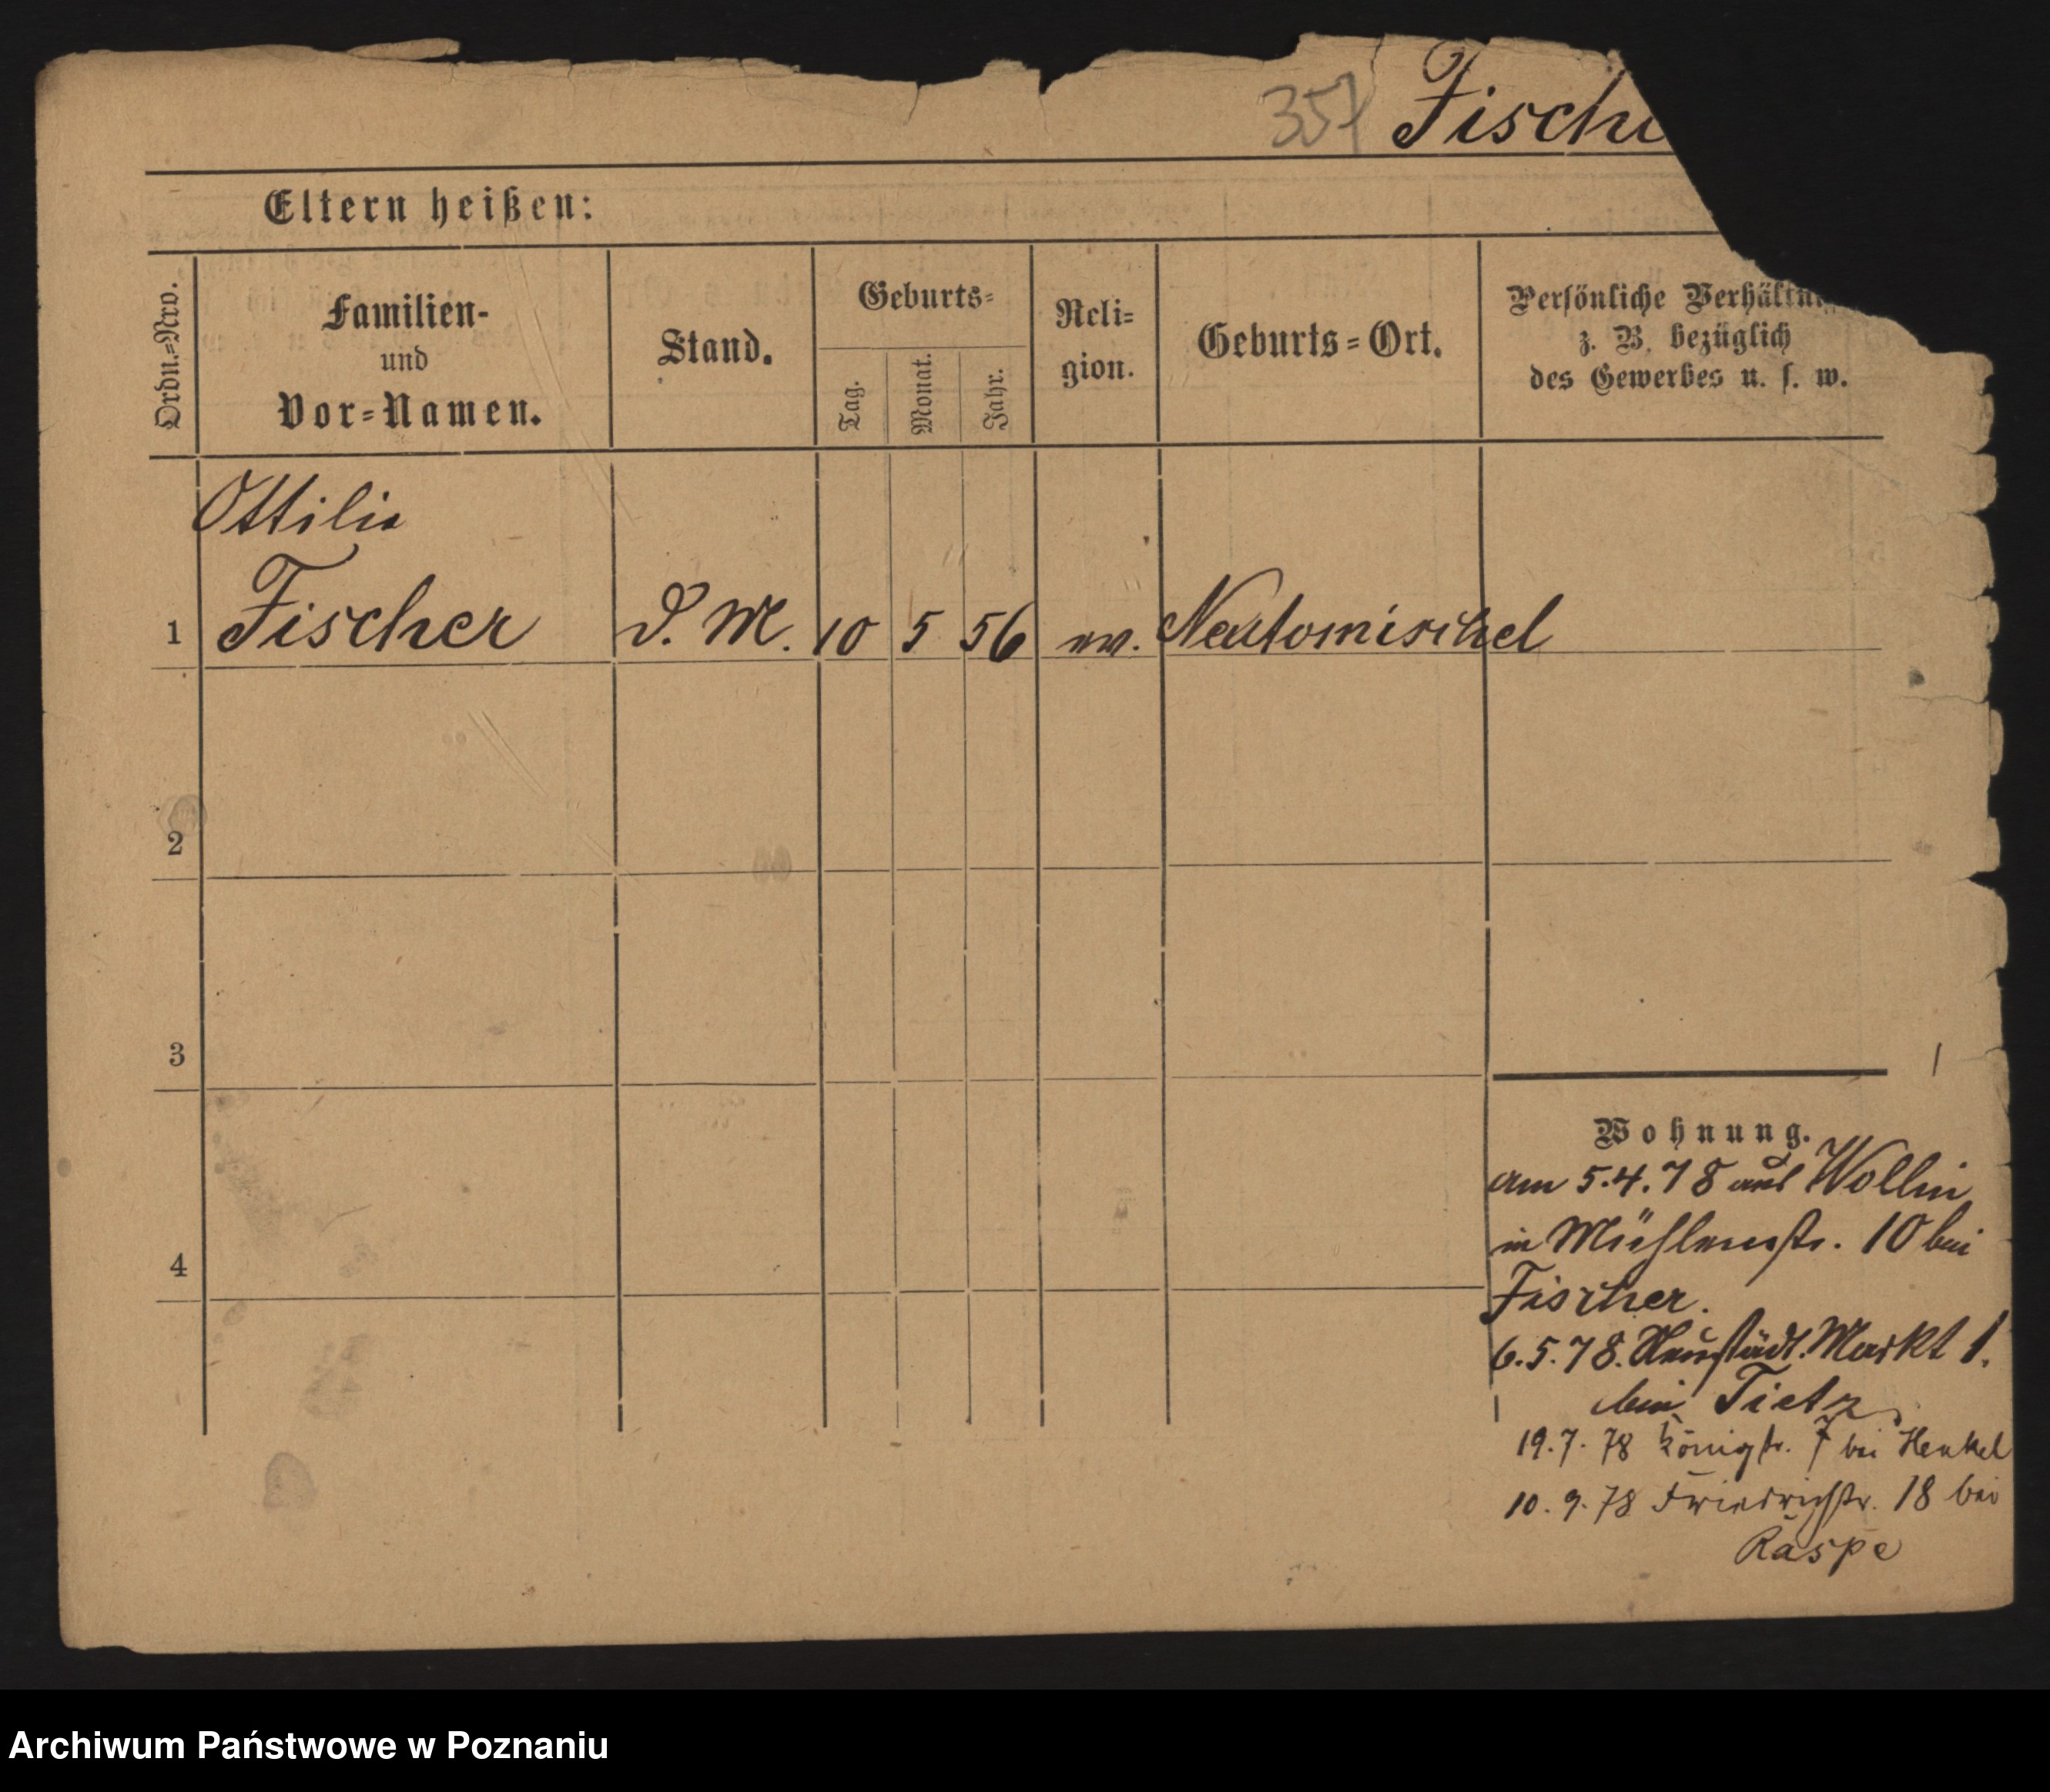 357 Fische
Eltern heißen:
Ordn.=Nro.
Familien-
und
Vor=Namen.
Stand.
Geburts=
Tag.
Monat.
Jahr.
Reli=
gion.
Geburts=Ort.
Persönliche Verhältni
z. B. bezüglich
des Gewerbes u. s. w.
Ottilie
1 Fischer D. M. 10 5 56 Neutomischel
2
3
4
Wohnung.
am 5.4.78 aus Wollin
in Mühlenstr. 10 bei
Fischer.
6.5.78. Neustädt. Markt 1.
bei Tietz
19.7.78 Königstr. 7 bei Henkel
10.9.78 Friedrichstr. 18 bei
Raspe
Archiwum Państwowe w Poznaniu